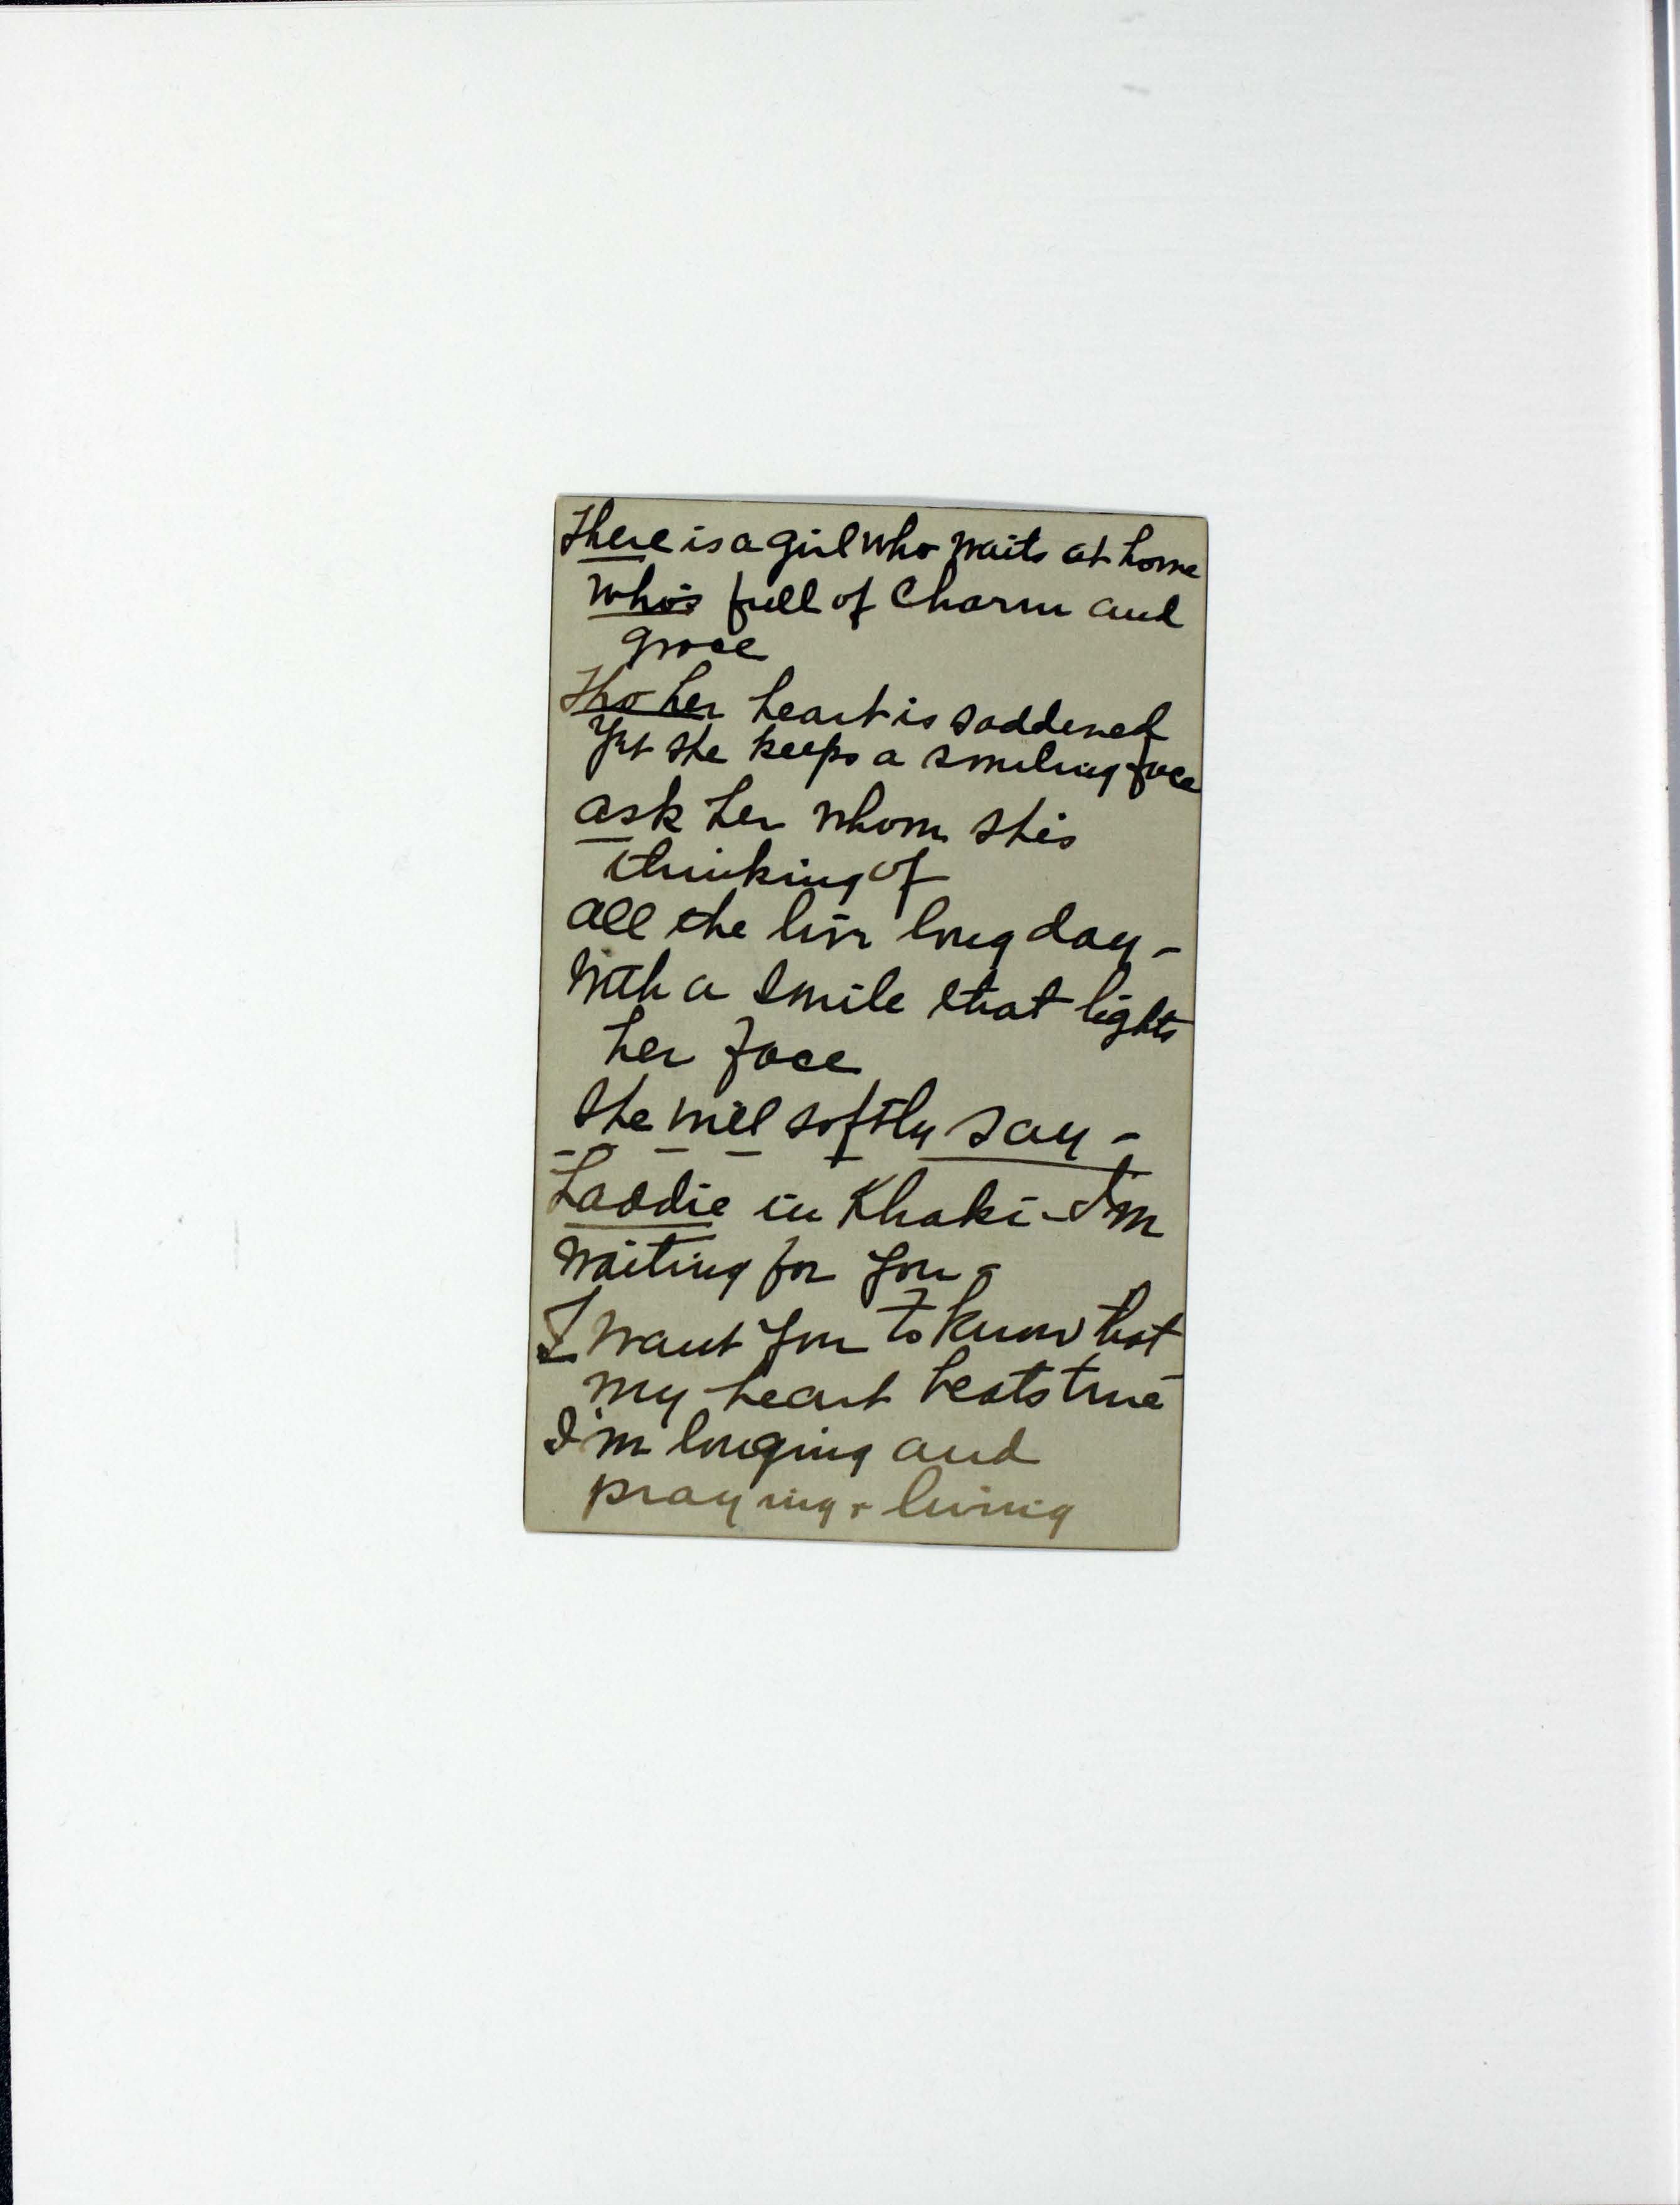 There is a girl who waits at home
who's full of Charm and
grace
Tho her heart is saddened
Yet she keeps a smiling face
ask her whom she's
thinking of
all the live long day -
With a smile that lights
her face
She will softly say -
Laddie in Khaki - I'm
waiting for you -
I want you to know that
my heart beats true
I'm longing and
praying + living